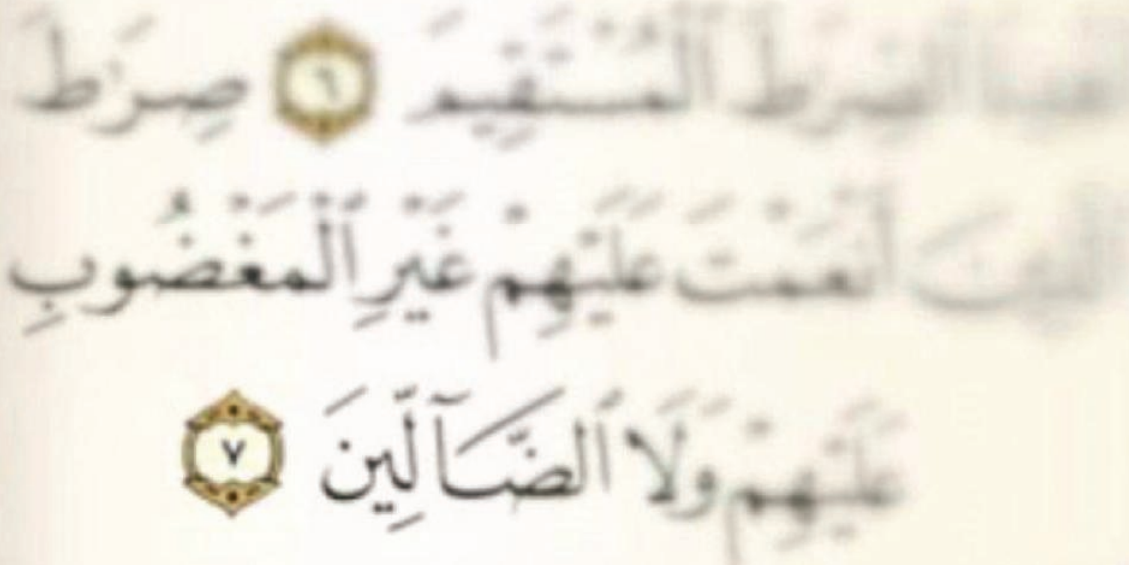 ٱهْدِنَا ٱلصِّرَٰطَ ٱلْمُسْتَقِيمَ ٦ صِرَٰطَ
ٱلَّذِينَ أَنْعَمْتَ عَلَيْهِمْ غَيْرِ ٱلْمَغْضُوبِ
عَلَيْهِمْ وَلَا ٱلضَّآلِّينَ ٧